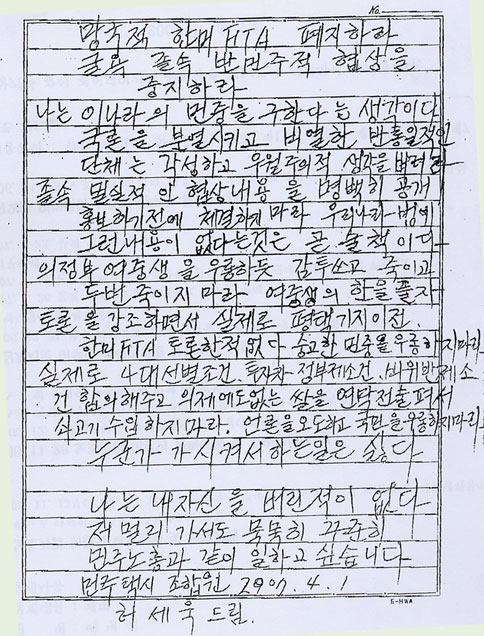 No.
망국적 한미 FTA 폐지하라
굴욕 졸속 반민주적 협상을
중지하라
나는 이나라의 민중을 구한다는 생각이다
국론을 분열시키고 비열한 반통일적인
단체는 각성하고 우월주의적 생각을 버려라
졸속 밀실적인 협상내용을 명백히 공개
홍보하기전에 체결하지 마라 우리나라 법에
그런내용이 없다는것은 곧 술책이다
의정부 여중생을 우롱하듯 감투쓰고 죽이고
두번 죽이지 마라 여중생의 한을 풀자
토론을 강조하면서 실제로 평택기지이전
한미 FTA 토론한적 없다 숭고한 민중을 우롱하지마라
실제로 4대선별조건, 투자자 정부제소건, 비위반제소
건 합의해주고 의제에도없는 쌀을 연막전술펴서
쇠고기 수입하지마라. 언론을오도하고 국민을우롱하지마라
누군가 가시켜서하는일은 싫다
나는 내자신을 버린적이 없다
저 멀리 가서도 묵묵히 꾸준히
민주노총과 같이 일하고 싶습니다
민주택시 조합원 2007. 4. 1
허세욱 드림.
E-HWA